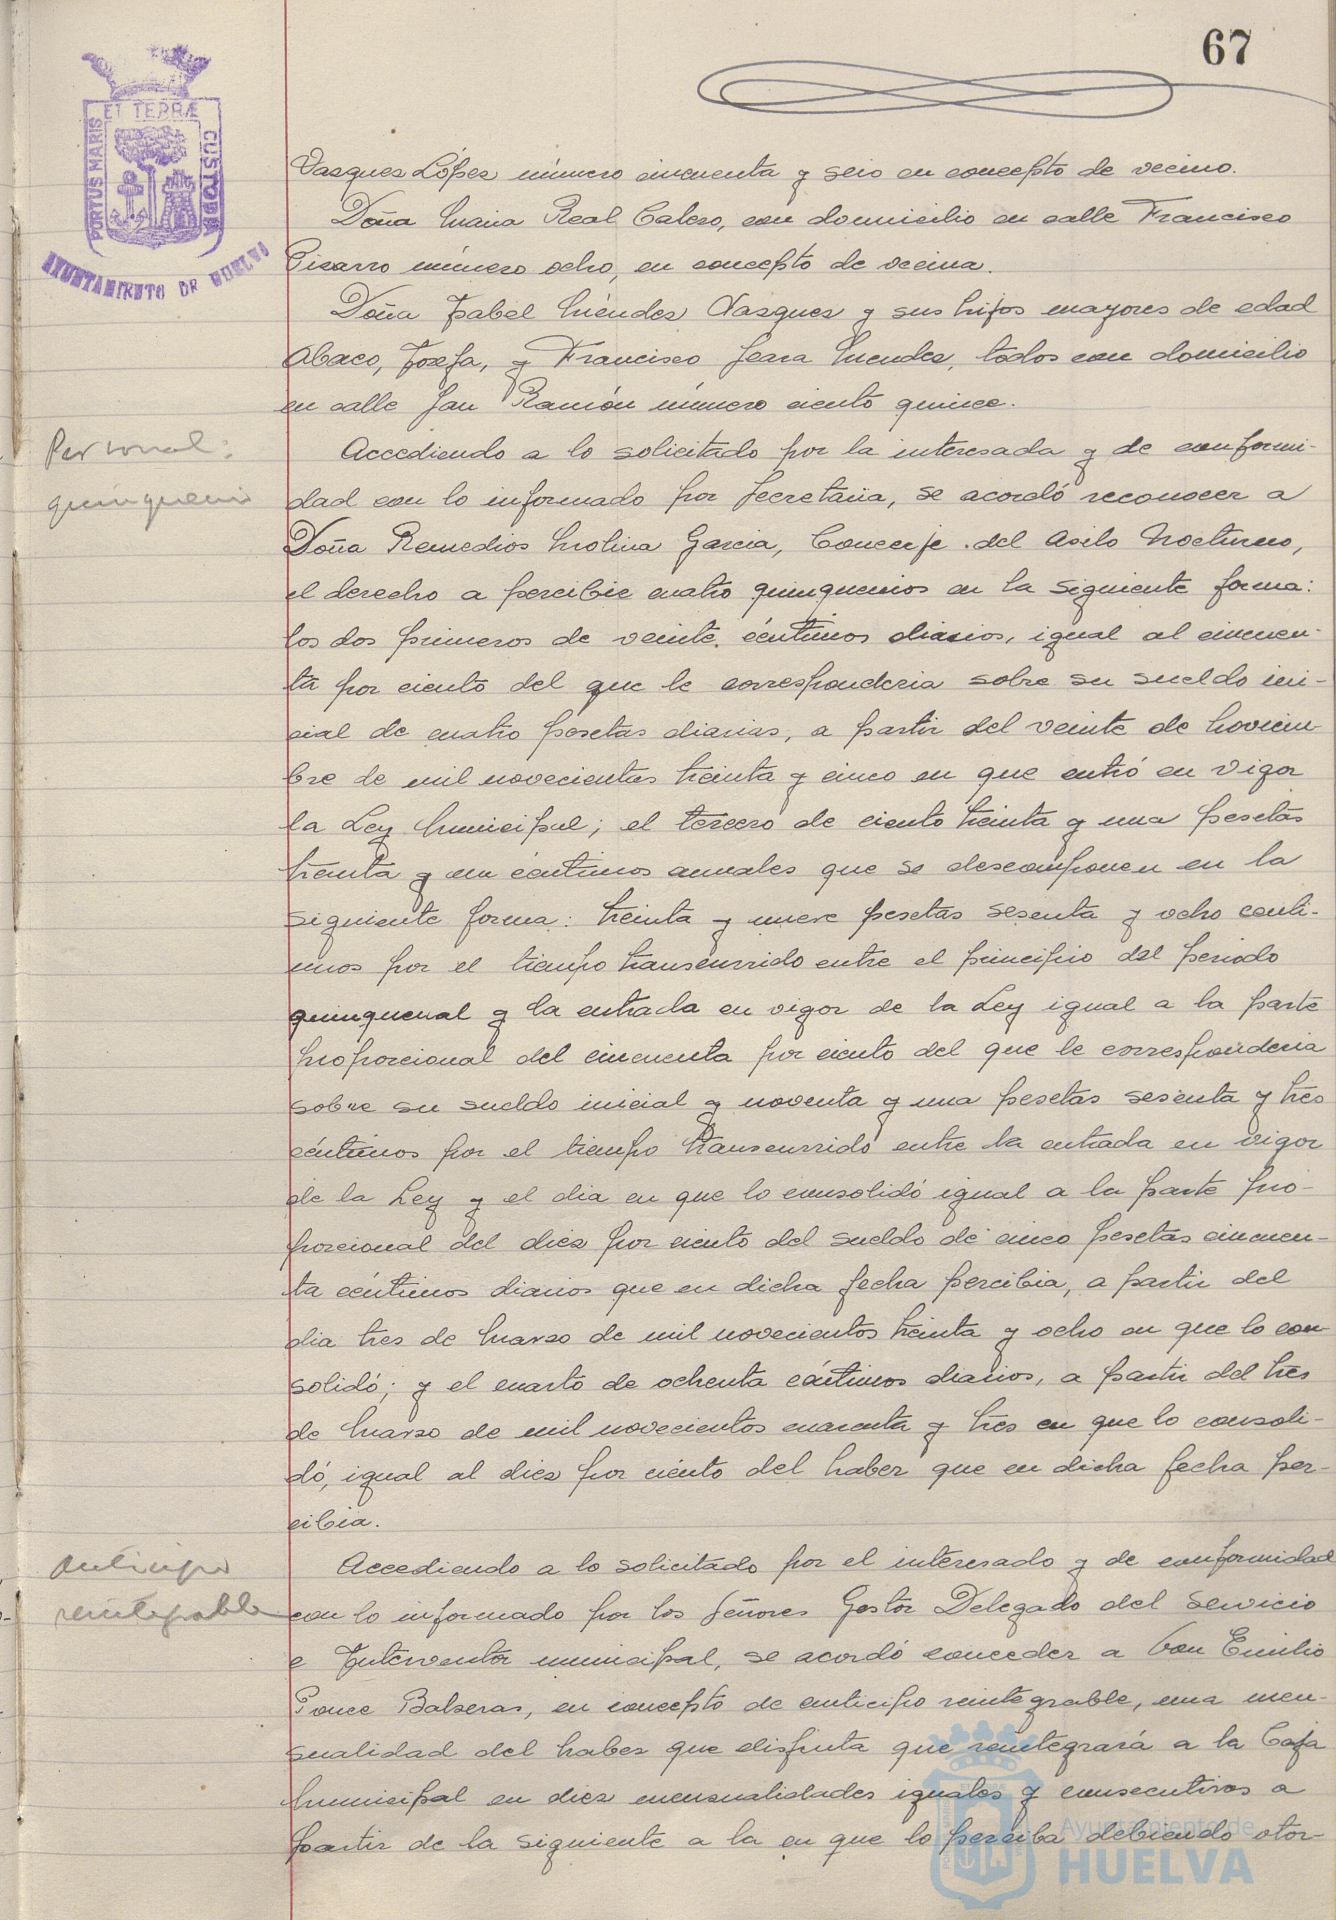 67
ET TERRÆ
PORTUS MARIS
CUSTODIA
AYUNTAMIENTO DE HUELVA
Vasquez López número cincuenta y seis en concepto de vecino.
Doña Maria Real Calero, con domicilio en calle Francisco
Pizarro número ocho, en concepto de vecina.
Doña Isabel Méndez Vasquez y sus hijos mayores de edad
Josefa, y Francisco Mendez, todos con domicilio
en calle San Ramón número ciento quince.
Personal:
quinquenio
Accediendo a lo solicitado por la interesada y de conformi-
dad con lo informado por Secretaria, se acordó reconocer a
Doña Remedios Molina Garcia, Conserje del Asilo Nocturno,
el derecho a percibir cuatro quinquenios en la siguiente forma:
los dos primeros de veinte céntimos diarios, igual al cincuen-
ta por ciento del que le corresponderia sobre su sueldo ini-
cial de cuatro pesetas diarias, a partir del veinte de Noviem-
bre de mil novecientos treinta y cinco en que entró en vigor
la Ley Municipal; el tercero de ciento treinta y una pesetas
treinta y un céntimos anuales que se descomponen en la
siguiente forma: treinta y nueve pesetas sesenta y ocho cénti-
mos por el tiempo transcurrido entre el principio del periodo
quinquenal y la entrada en vigor de la Ley igual a la parte
proporcional del cincuenta por ciento del que le corresponderia
sobre su sueldo inicial y noventa y una pesetas sesenta y tres
céntimos por el tiempo transcurrido entre la entrada en vigor
de la Ley y el dia en que lo consolidó igual a la parte pro-
porcional del diez por ciento del sueldo de cinco pesetas cincuen-
ta céntimos diarios que en dicha fecha percibia, a partir del
dia tres de Marzo de mil novecientos treinta y ocho en que lo con-
solidó; y el cuarto de ochenta céntimos diarios, a partir del tres
de Marzo de mil novecientos cuarenta y tres en que lo consoli-
dó, igual al diez por ciento del haber que en dicha fecha per-
cibia.
Anticipo
reintegrable
Accediendo a lo solicitado por el interesado y de conformidad
con lo informado por los Señores Gestor Delegado del Servicio
e Interventor municipal, se acordó conceder a Don Emilio
Ponce Balseras, en concepto de anticipo reintegrable, una men-
sualidad del haber que disfruta que reintegrará a la Caja
Municipal en diez mensualidades iguales y consecutivas a
partir de la siguiente a la en que lo perciba debiendo otor-
Ayuntamiento de
HUELVA